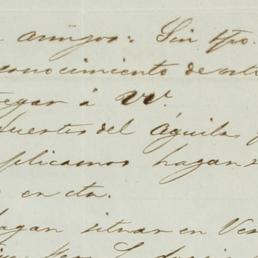 amigos: Sin tpo.
conocimiento de
tregar á VV.
fuertes del Águila,
plicamos hagan
en cta.
hagan situar en Ver